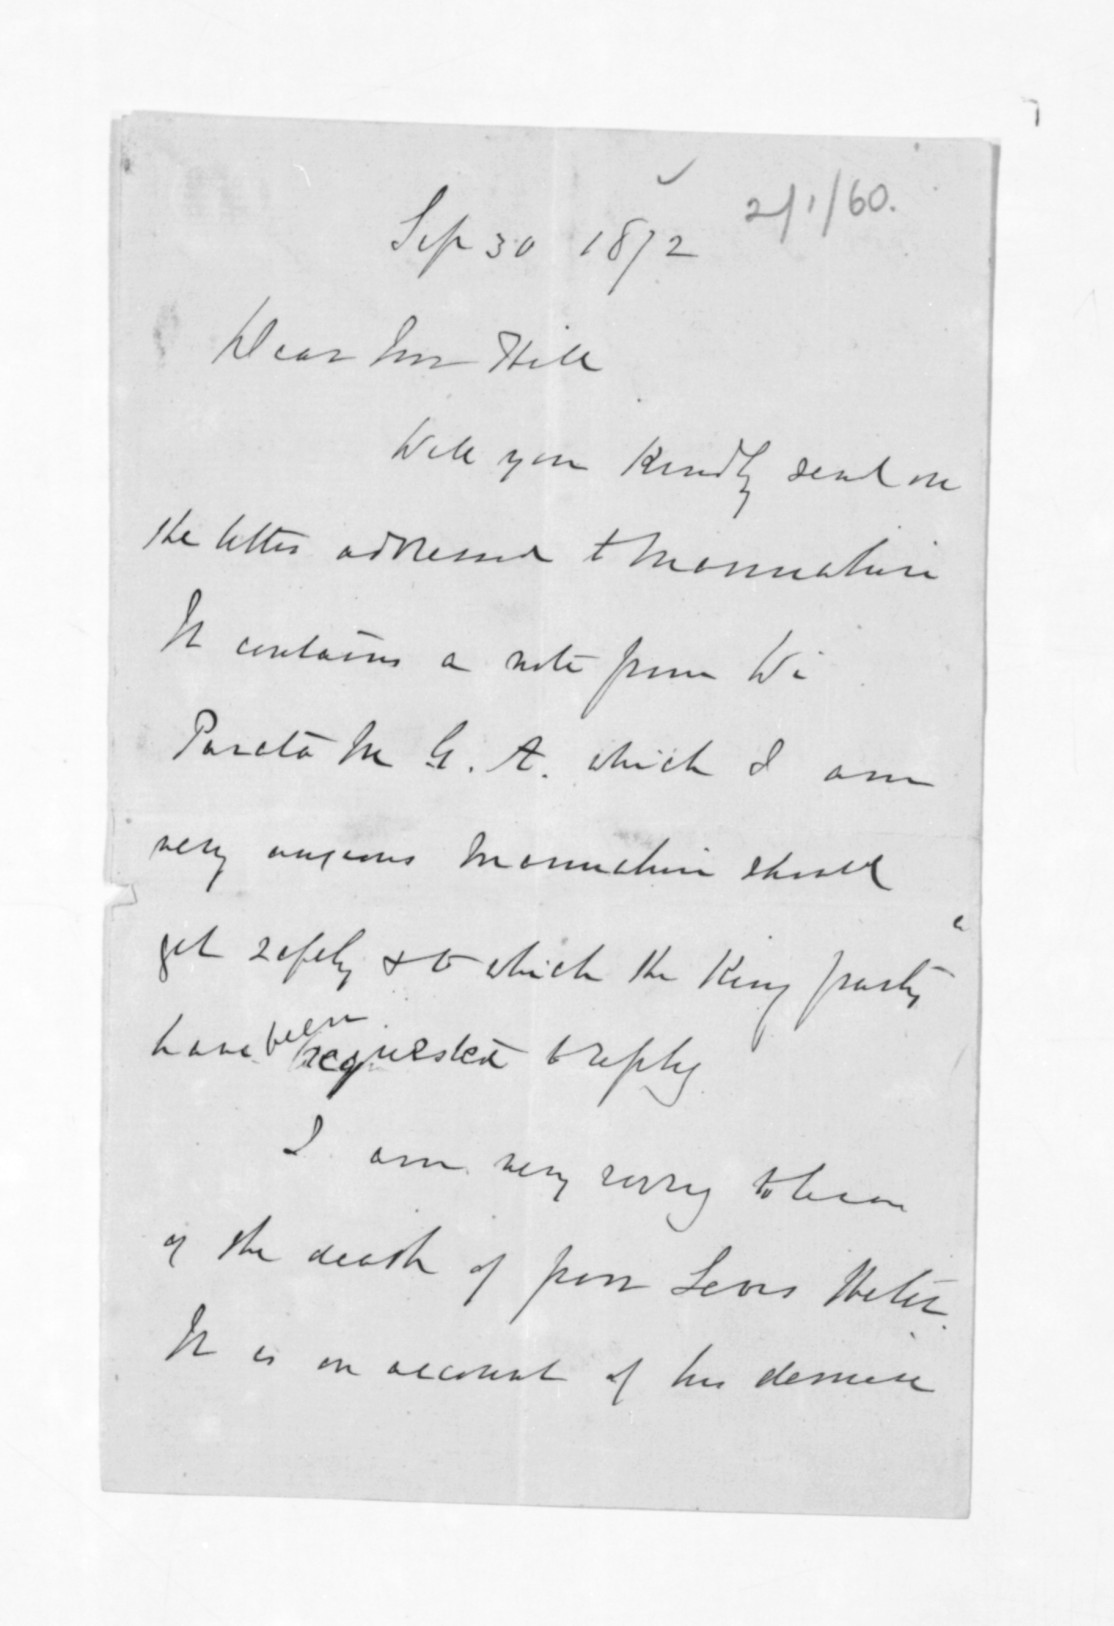 2/1/60.
Sep 30 1872
Dear Mr Hill
Will you kindly send on
the letter addressed to Manuwhiri
It contains a note from Wi
Parata M. G. A. which I am
very anxious Manuwhiri should
get safely & to which the King party
have been requested to reply
I am very sorry to hear
of the death of poor Louis Hetet.
It is on account of his demise